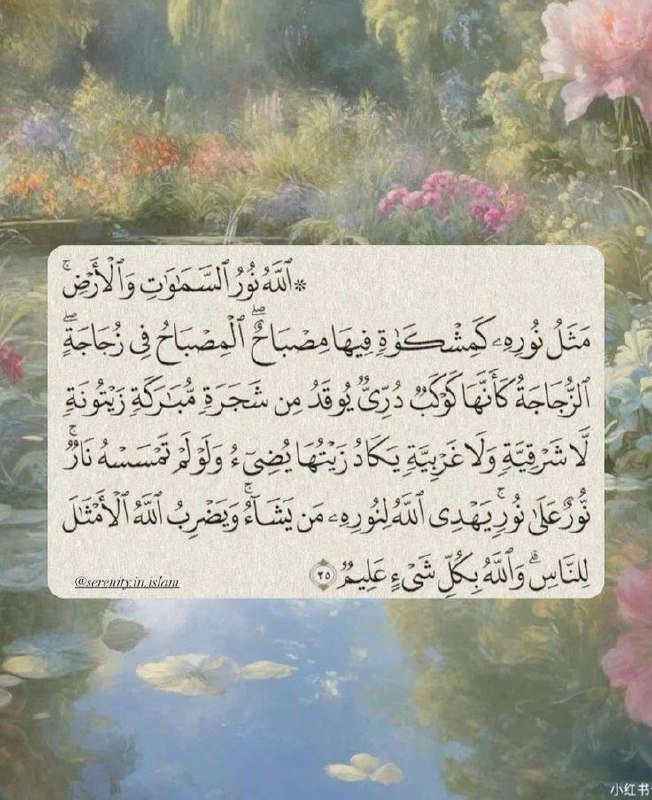 ۞ ٱللَّهُ نُورُ ٱلسَّمَٰوَٰتِ وَٱلْأَرْضِ ۚ
مَثَلُ نُورِهِۦ كَمِشْكَوٰةٍ فِيهَا مِصْبَاحٌ ۖ ٱلْمِصْبَاحُ فِى زُجَاجَةٍ ۖ
ٱلزُّجَاجَةُ كَأَنَّهَا كَوْكَبٌ دُرِّىٌّ يُوقَدُ مِن شَجَرَةٍ مُّبَٰرَكَةٍ زَيْتُونَةٍ
لَّا شَرْقِيَّةٍ وَلَا غَرْبِيَّةٍ يَكَادُ زَيْتُهَا يُضِىٓءُ وَلَوْ لَمْ تَمْسَسْهُ نَارٌ ۚ
نُّورٌ عَلَىٰ نُورٍ ۗ يَهْدِى ٱللَّهُ لِنُورِهِۦ مَن يَشَآءُ ۚ وَيَضْرِبُ ٱللَّهُ ٱلْأَمْثَٰلَ
لِلنَّاسِ ۗ وَٱللَّهُ بِكُلِّ شَىْءٍ عَلِيمٌ ٣٥
@serenity.in.islam
小红书